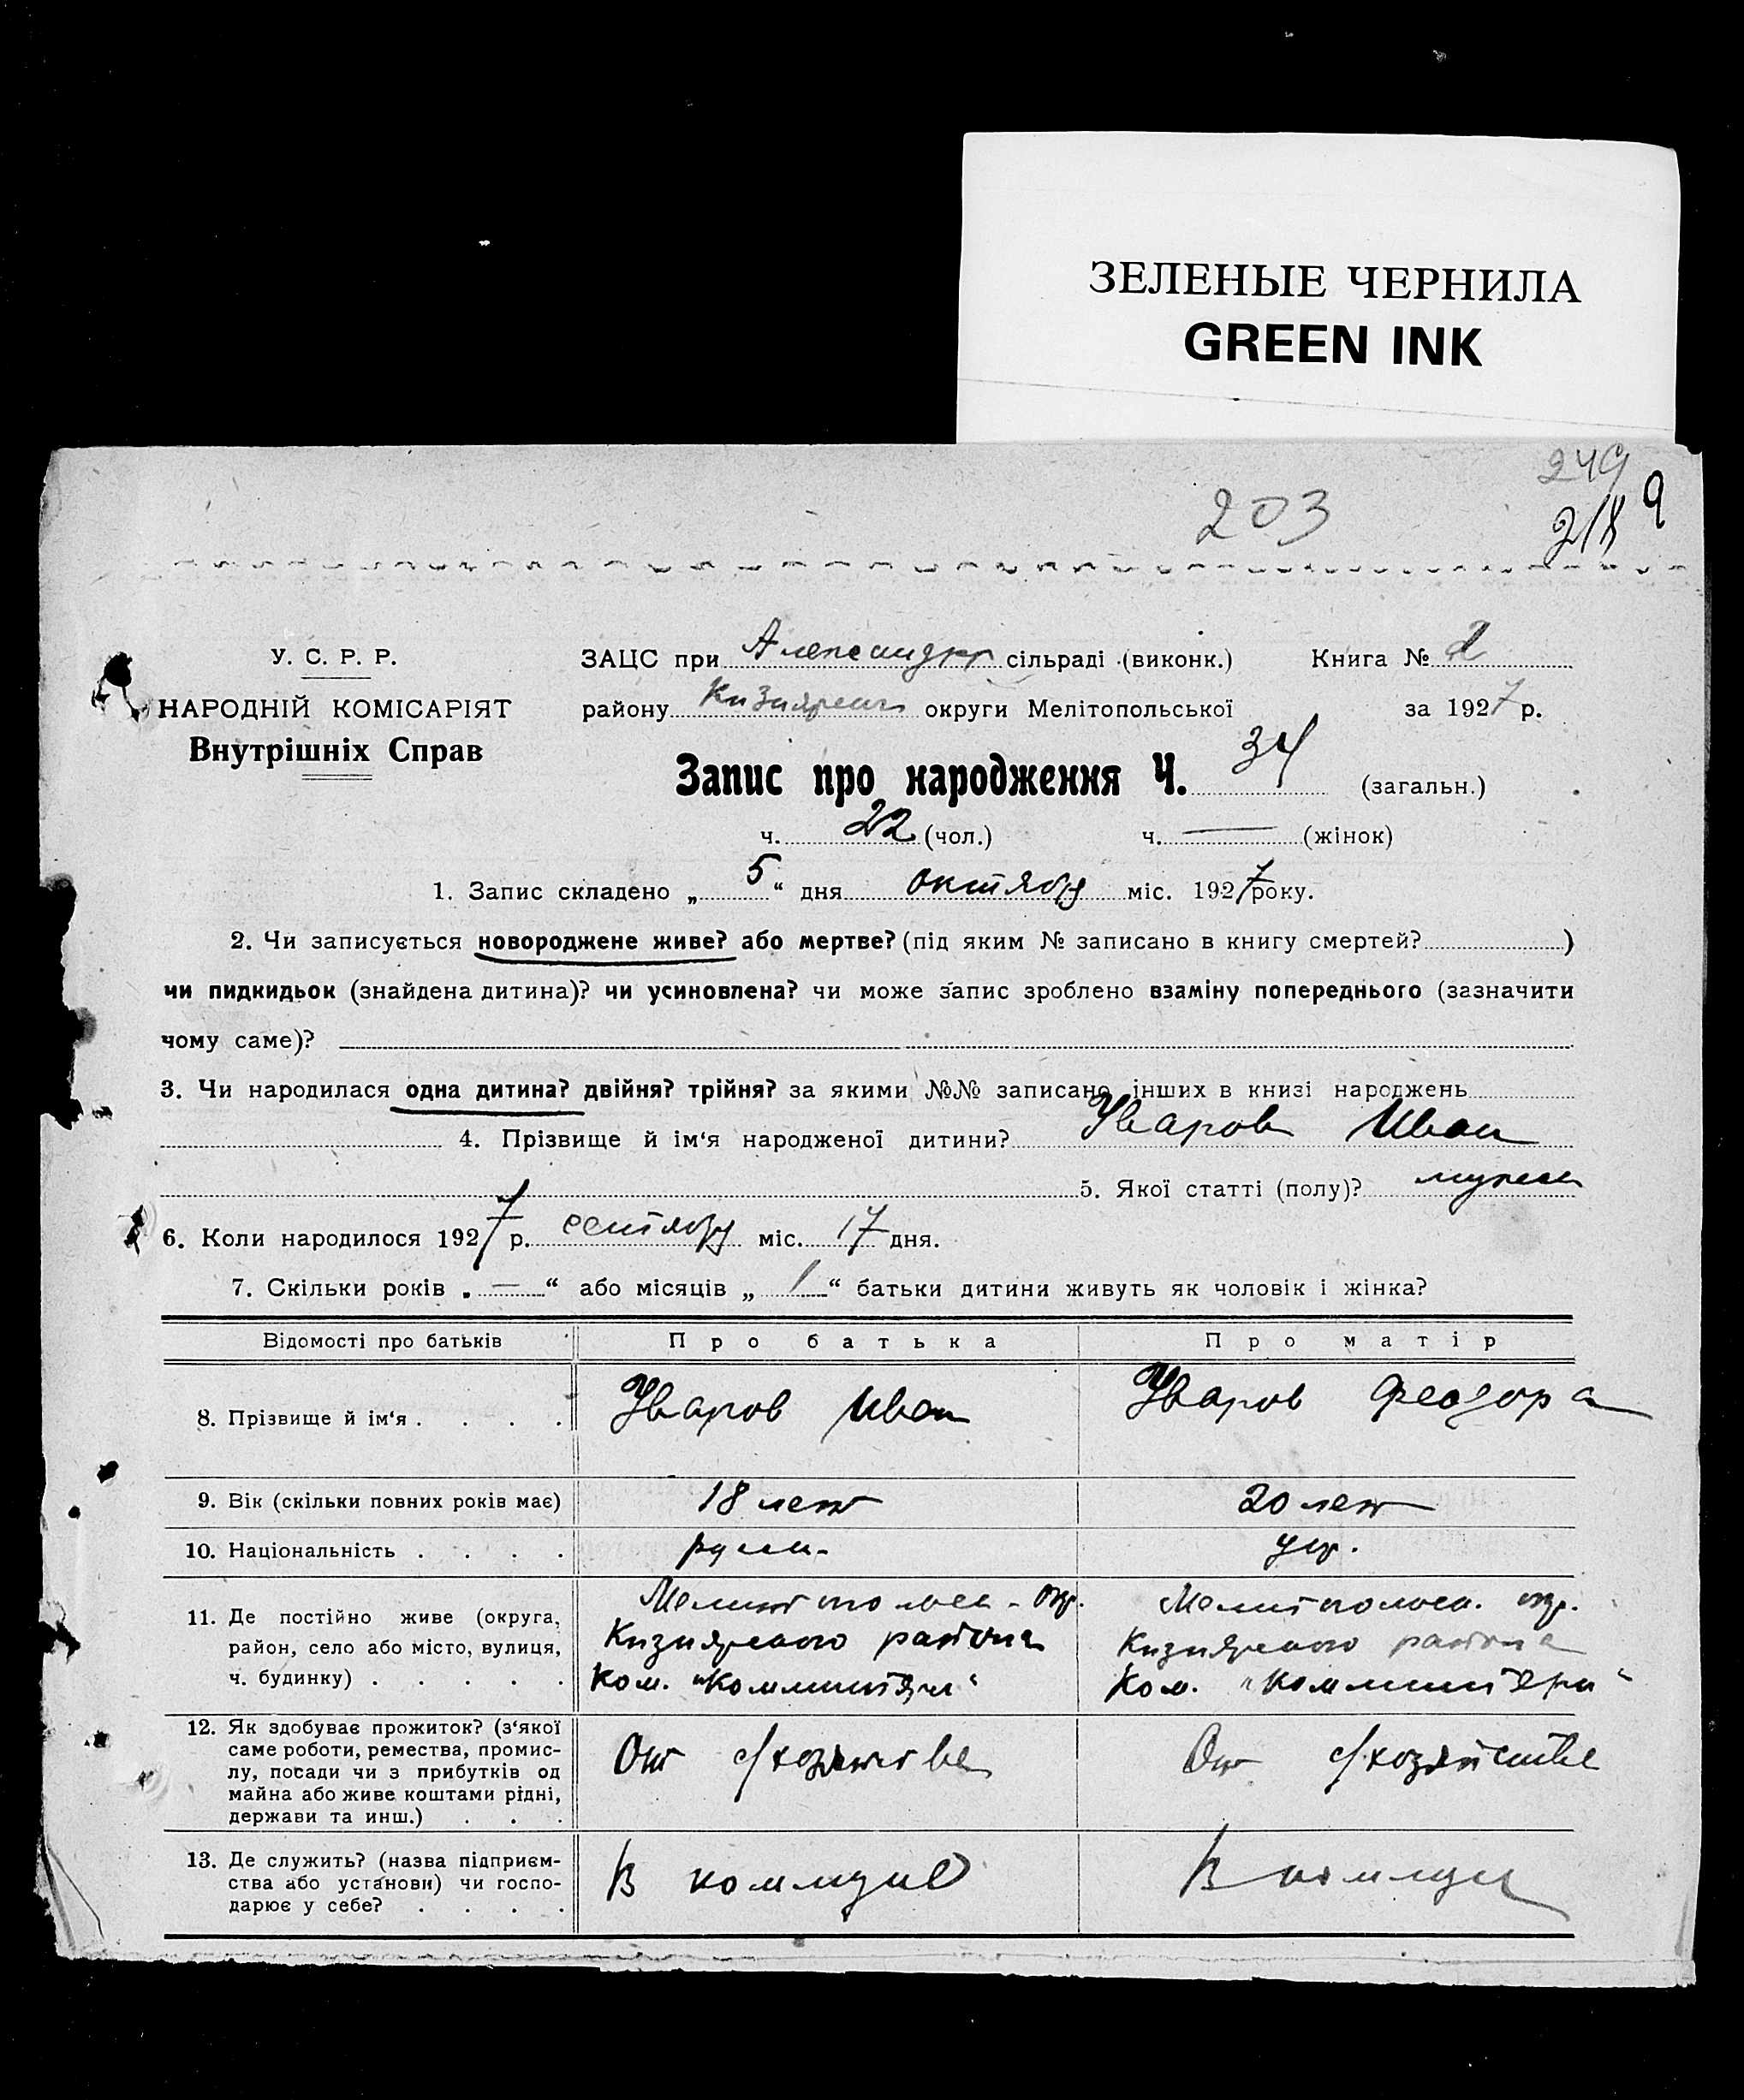 ЗЕЛЕНЫЕ ЧЕРНИЛА
GREEN INK
249
203
218 9
У. С. Р. Р.
НАРОДНІЙ КОМІСАРІЯТ
Внутрішніх Справ
ЗАЦС при Александр сільраді (виконк.) Книга № 2
району Кизиярськ округи Мелітопольської за 1927 р.
Запис про народження Ч. 34 (загальн.)
ч. 22 (чол.) ч. — (жінок)
1. Запис складено „ 5 “ дня октября міс. 1927 року.
2. Чи записується новороджене живе? або мертве? (під яким № записано в книгу смертей? )
чи пидкидьок (знайдена дитина)? чи усиновлена? чи може запис зроблено взаміну попереднього (зазначити
чому саме)?
3. Чи народилася одна дитина? двійня? трійня? за якими №№ записано інших в книзі народжень
4. Прізвище й ім‘я народженої дитини? Уваров Иван
5. Якої статті (полу)? мужск
6. Коли народилося 1927 р. сентября міс. 17 дня.
7. Скільки років „ — “ або місяців „ 1 “ батьки дитини живуть як чоловік і жінка?
Відомості про батьків Про батька Про матір
8. Прізвище й ім‘я . . . . Уваров Иван Уваров Феодора
9. Вік (скільки повних років має) 18 лет 20 лет
10. Національність . . . . русск. укр.
11. Де постійно живе (округа, Мелитопольск. окр. Мелитопольск. окр.
район, село або місто, вулиця, Кизиярского района Кизиярского района
ч. будинку) . . . . . Ком. "Коминтерн" Ком. "Коминтерн"
12. Як здобуває прожиток? (з‘якої
саме роботи, ремества, промис-
лу, посади чи з прибутків од От с/хозяйства От с/хозяйства
майна або живе коштами рідні,
держави та инш.) . . .
13. Де служить? (назва підприєм-
ства або установи) чи госпо- В коммуне В коммуне
дарює у себе? . . . .